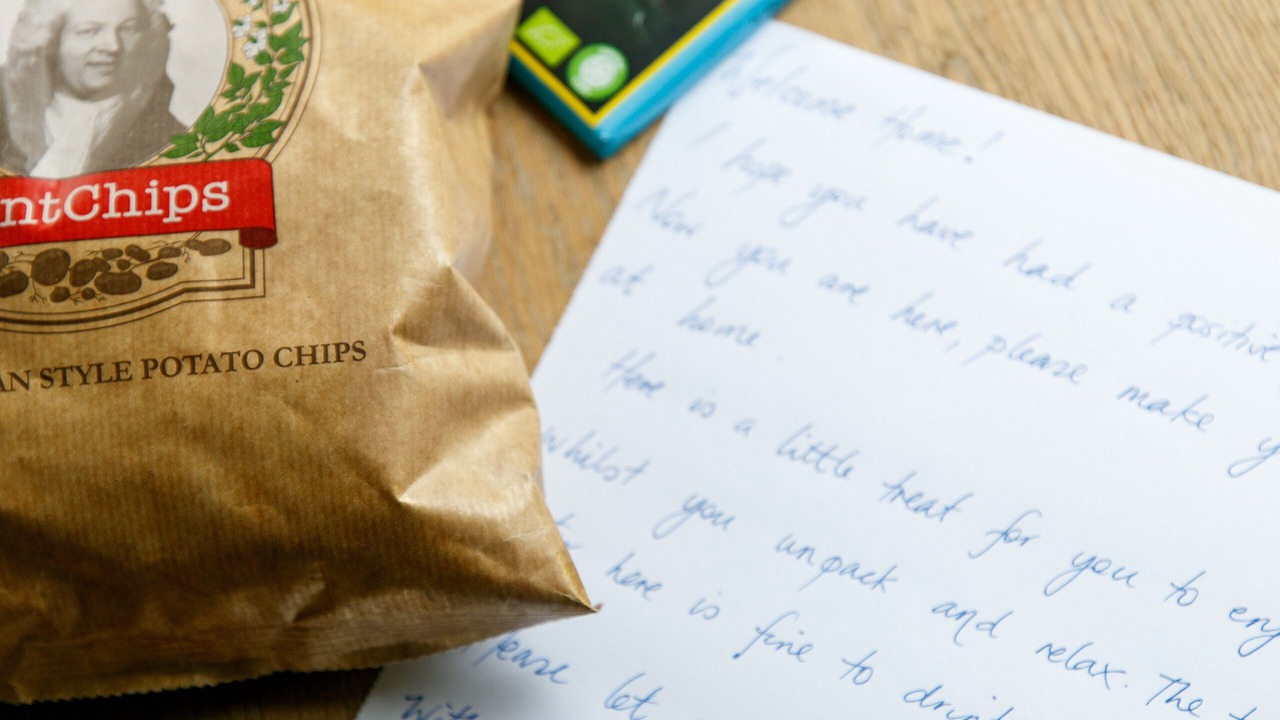 ntChips
AN STYLE POTATO CHIPS
Welcome Home!
I hope you have had a positive
Now you are here, please make y
at home
Here is a little treat for you to enj
whilst you unpack and relax. The t
here is fine to drin
Please let
With